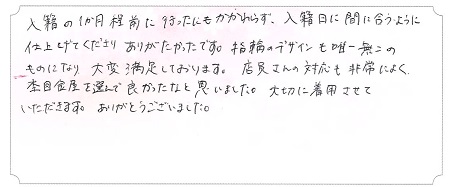 入籍の1か月程前に伺ったにもかかわらず、入籍日に間に合うように
仕上げてくださり ありがたかったです。指輪のデザインも唯一無二の
ものになり 大変満足しております。店員さんの対応も非常によく、
杢目金屋を選んで良かったなと思いました。大切に着用させて
いただきます。ありがとうございました。